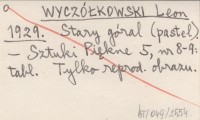 a WYCZÓŁKOWSKI Leon
1929. Stary góral (pastel).
– Sztuki Piękne 5, nr 8-9:
tabl. Tylko reprod. obrazu.